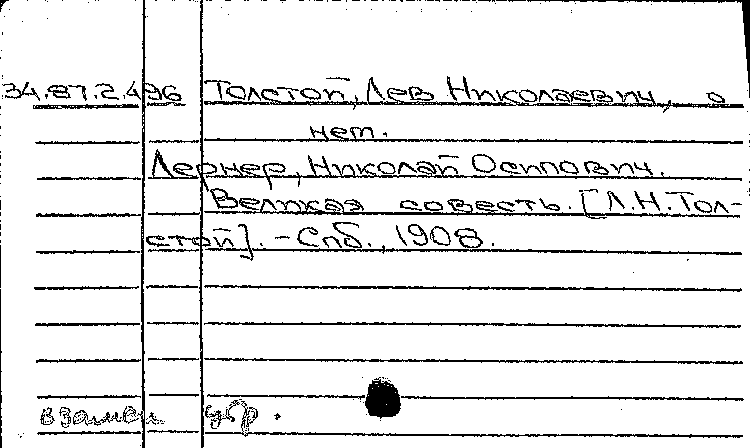 34.87.2.496 Толстой, Лев Николаевич, о
нем.
Лернер, Николай Осипович.
Великая совесть. [Л.Н.Тол-
стой]. - Спб., 1908.
взамен утр.